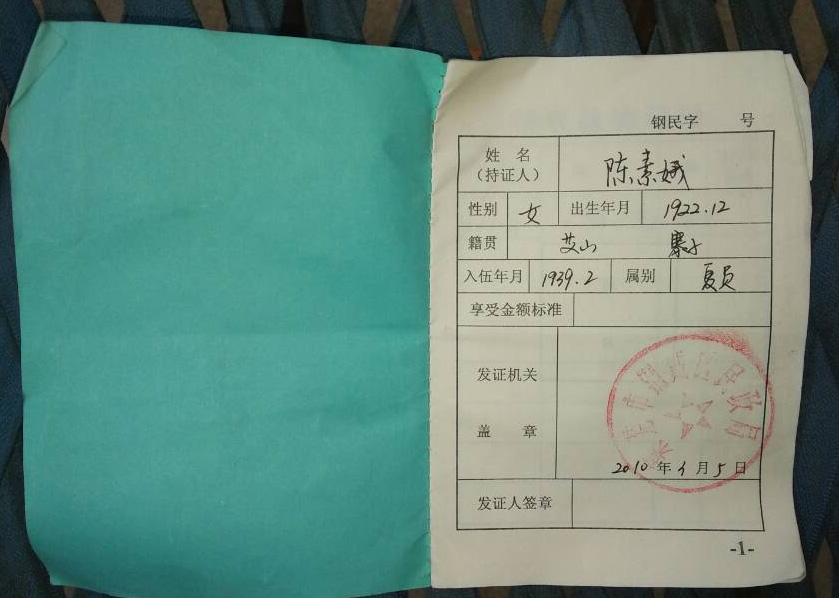 钢民字 号
姓 名
(持证人) 陈素娥
性别 女 出生年月 1922.12
籍贯 艾山 寨子
入伍年月 1939.2 属别 复员
享受金额标准
发证机关
盖 章
莱芜市钢城区民政局
2010年4月5日
发证人签章
-1-